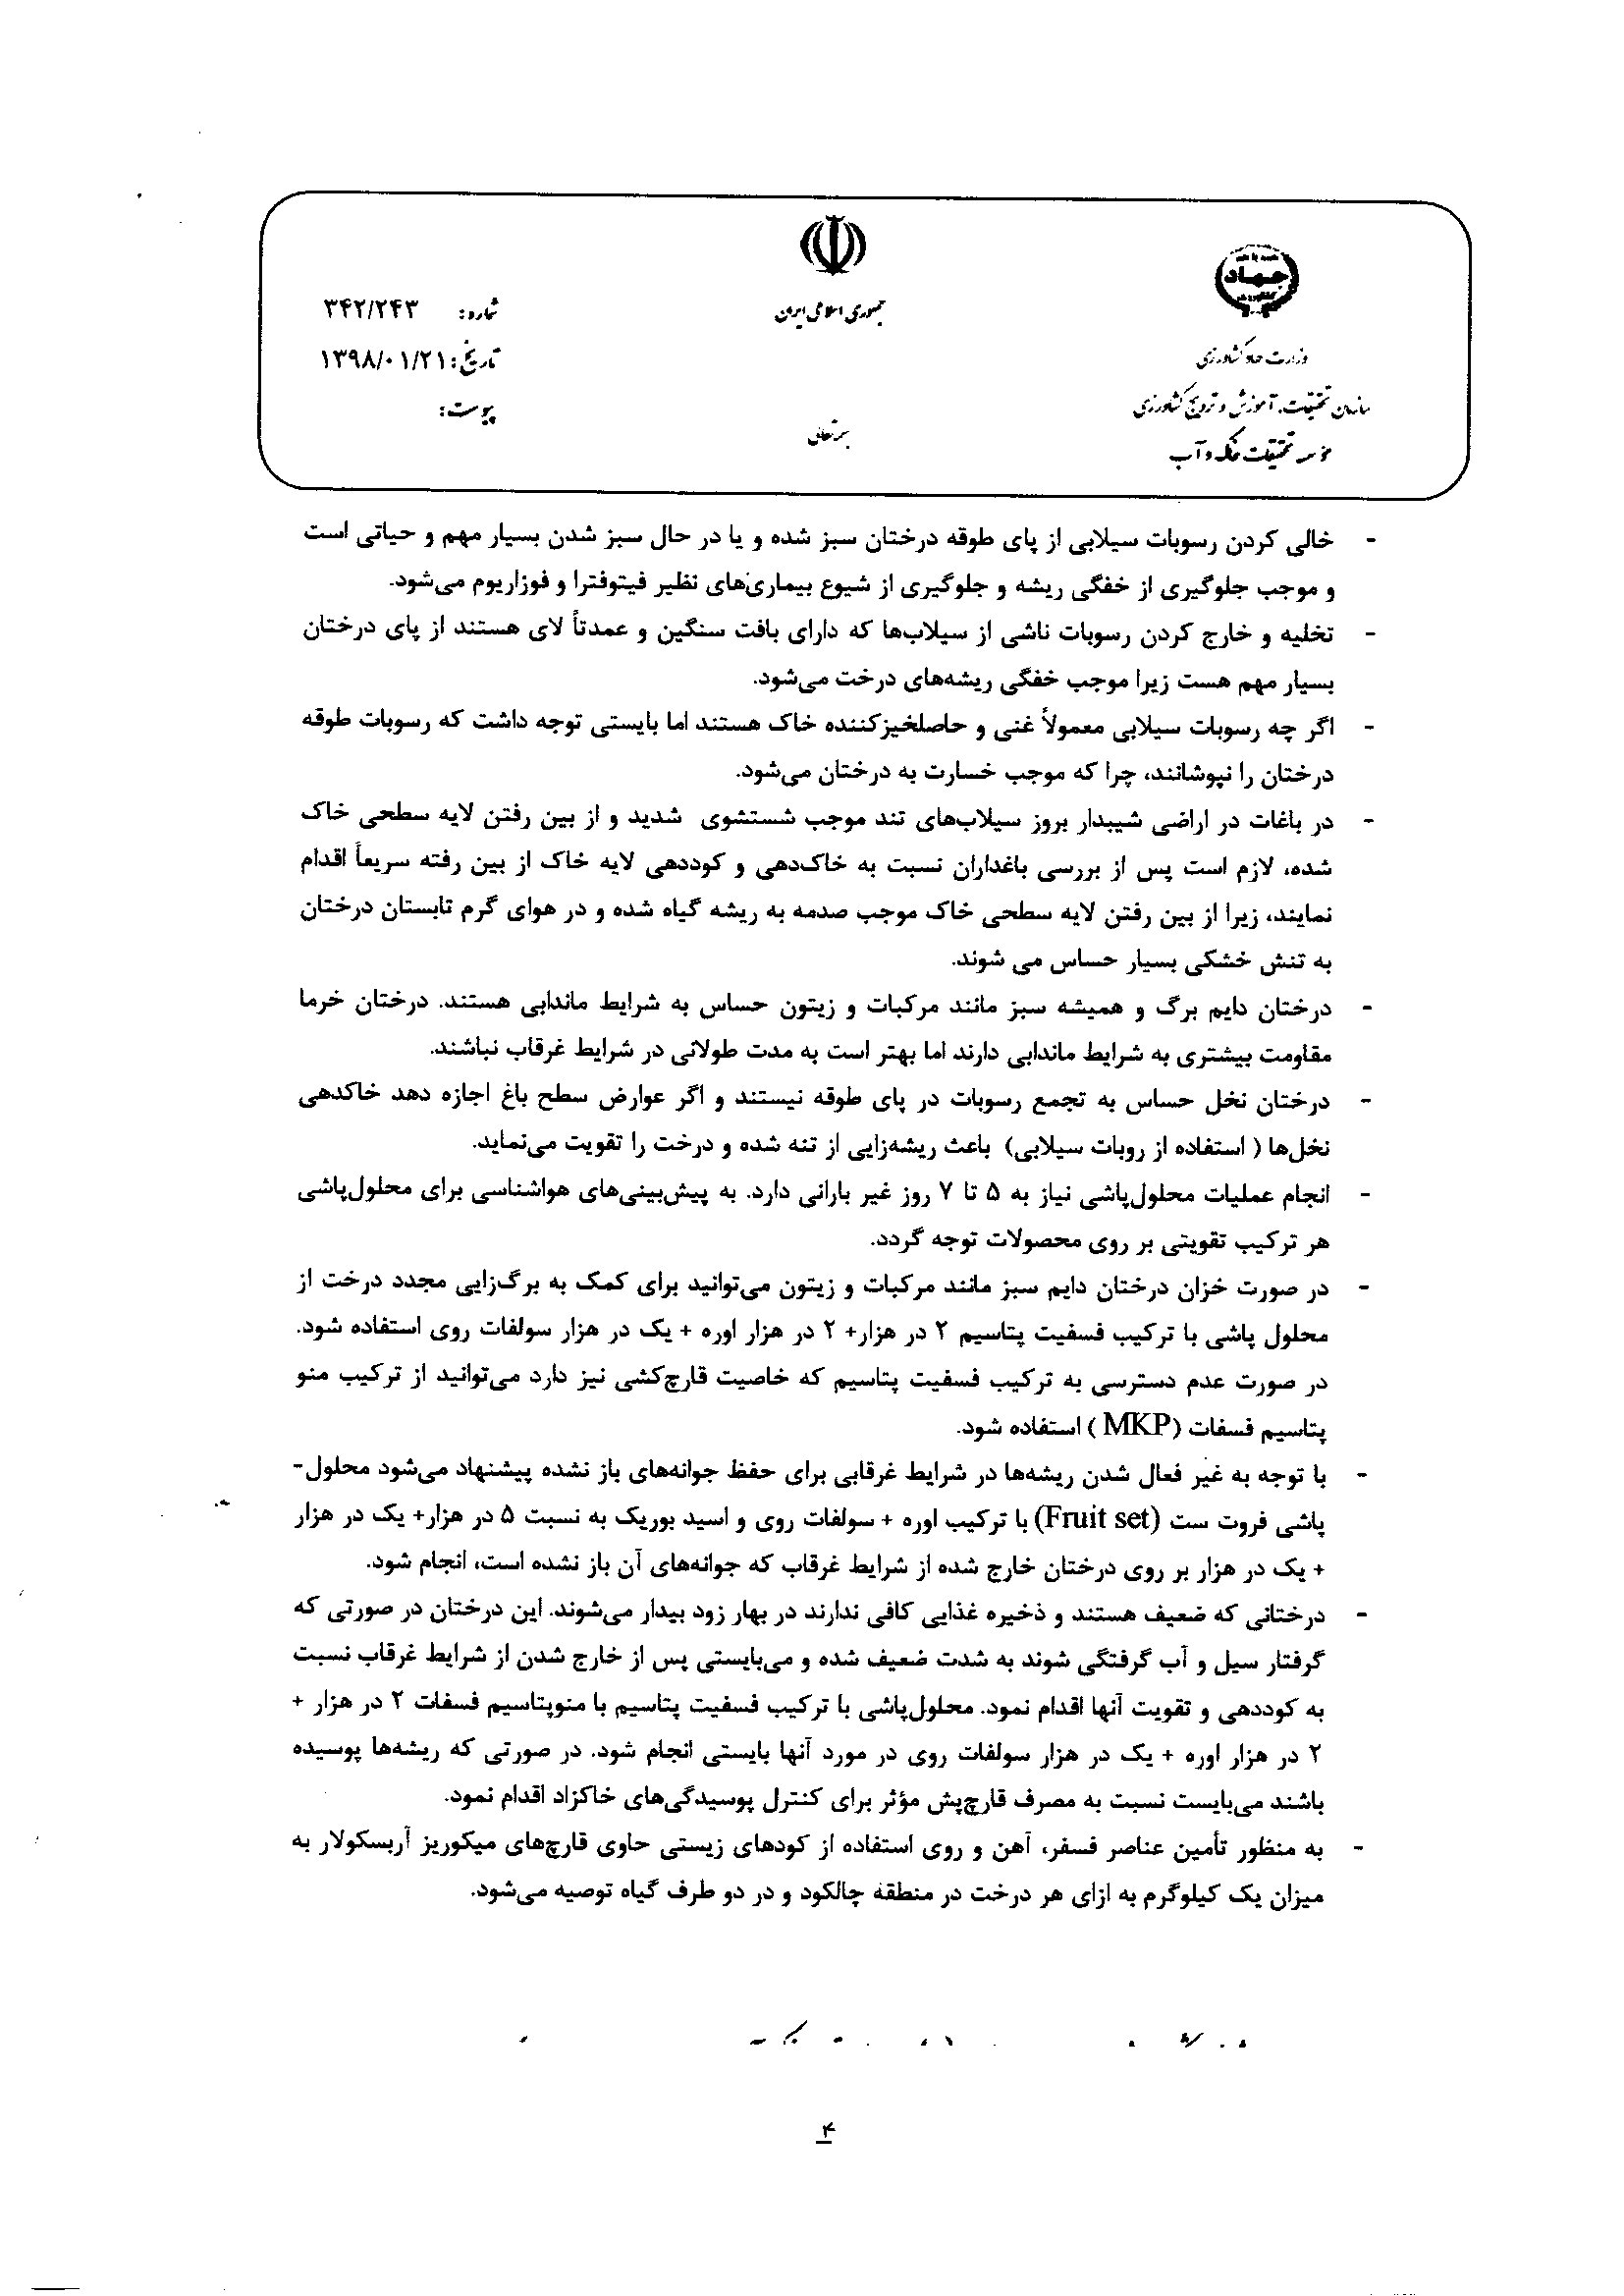 جمهوری اسلامی ایران
بسمه تعالی
جهاد
وزارت جهاد کشاورزی
سازمان تحقیقات، آموزش و ترویج کشاورزی
موسسه تحقیقات خاک و آب
شماره: ۳۴۲/۲۴۳
تاریخ: ۱۳۹۸/۰۱/۲۱
پیوست:
- خالی کردن رسوبات سیلابی از پای طوقه درختان سبز شده و یا در حال سبز شدن بسیار مهم و حیاتی است
و موجب جلوگیری از خفگی ریشه و جلوگیری از شیوع بیماری‌های نظیر فیتوفترا و فوزاریوم می‌شود.
- تخلیه و خارج کردن رسوبات ناشی از سیلاب‌ها که دارای بافت سنگین و عمدتاً لای هستند از پای درختان
بسیار مهم هست زیرا موجب خفگی ریشه‌های درخت می‌شود.
- اگر چه رسوبات سیلابی معمولاً غنی و حاصلخیزکننده خاک هستند اما بایستی توجه داشت که رسوبات طوقه
درختان را نپوشانند، چرا که موجب خسارت به درختان می‌شود.
- در باغات در اراضی شیبدار بروز سیلاب‌های تند موجب شستشوی شدید و از بین رفتن لایه سطحی خاک
شده، لازم است پس از بررسی باغداران نسبت به خاک‌دهی و کوددهی لایه خاک از بین رفته سریعاً اقدام
نمایند، زیرا از بین رفتن لایه سطحی خاک موجب صدمه به ریشه گیاه شده و در هوای گرم تابستان درختان
به تنش خشکی بسیار حساس می شوند.
- درختان دایم برگ و همیشه سبز مانند مرکبات و زیتون حساس به شرایط ماندابی هستند. درختان خرما
مقاومت بیشتری به شرایط ماندابی دارند اما بهتر است به مدت طولانی در شرایط غرقاب نباشند.
- درختان نخل حساس به تجمع رسوبات در پای طوقه نیستند و اگر عوارض سطح باغ اجازه دهد خاکدهی
نخل‌ها ( استفاده از روبات سیلابی) باعث ریشه‌زایی از تنه شده و درخت را تقویت می‌نماید.
- انجام عملیات محلول‌پاشی نیاز به ۵ تا ۷ روز غیر بارانی دارد. به پیش‌بینی‌های هواشناسی برای محلول‌پاشی
هر ترکیب تقویتی بر روی محصولات توجه گردد.
- در صورت خزان درختان دایم سبز مانند مرکبات و زیتون می‌توانید برای کمک به برگ‌زایی مجدد درخت از
محلول پاشی با ترکیب فسفیت پتاسیم ۲ در هزار+ ۲ در هزار اوره + یک در هزار سولفات روی استفاده شود.
در صورت عدم دسترسی به ترکیب فسفیت پتاسیم که خاصیت قارچ‌کشی نیز دارد می‌توانید از ترکیب منو
پتاسیم فسفات (MKP) استفاده شود.
- با توجه به غیر فعال شدن ریشه‌ها در شرایط غرقابی برای حفظ جوانه‌های باز نشده پیشنهاد می‌شود محلول-
پاشی فروت ست (Fruit set) با ترکیب اوره + سولفات روی و اسید بوریک به نسبت ۵ در هزار+ یک در هزار
+ یک در هزار بر روی درختان خارج شده از شرایط غرقاب که جوانه‌های آن باز نشده است، انجام شود.
- درختانی که ضعیف هستند و ذخیره غذایی کافی ندارند در بهار زود بیدار می‌شوند. این درختان در صورتی که
گرفتار سیل و آب گرفتگی شوند به شدت ضعیف شده و می‌بایستی پس از خارج شدن از شرایط غرقاب نسبت
به کوددهی و تقویت آنها اقدام نمود. محلول‌پاشی با ترکیب فسفیت پتاسیم با منوپتاسیم فسفات ۲ در هزار +
۲ در هزار اوره + یک در هزار سولفات روی در مورد آنها بایستی انجام شود. در صورتی که ریشه‌ها پوسیده
باشند می‌بایست نسبت به مصرف قارچ‌پش مؤثر برای کنترل پوسیدگی‌های خاکزاد اقدام نمود.
- به منظور تأمین عناصر فسفر، آهن و روی استفاده از کودهای زیستی حاوی قارچ‌های میکوریز آربسکولار به
میزان یک کیلوگرم به ازای هر درخت در منطقه چالکود و در دو طرف گیاه توصیه می‌شود.
۴